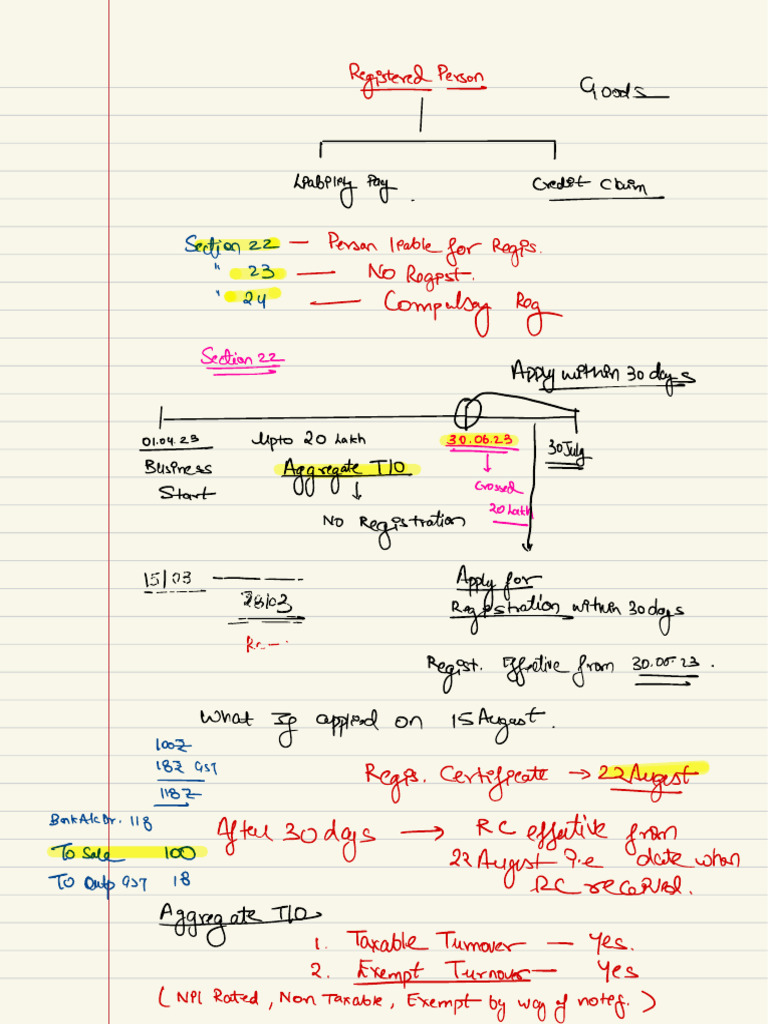 Registered Person
Goods
Liability Pay
Credit Claim
Section 22 — Person liable for Regis.
" 23 — No Regist.
" 24 — Compulsory Reg
Section 22
Apply within 30 days
01.04.23 Upto 20 Lakh 30.06.23 30 July
Business Start
Aggregate T/O
Crossed 20 Lakh
No Registration
15/03
28/03
Apply for
Registration within 30 days
Regist. Effective from 30.06.23.
What If applied on 15 August.
100Z
18Z GST
118Z
Regis. Certificate → 22 August
Bank A/c Dr. 118
To Sale 100
To Outp GST 18
After 30 days → RC effective from
22 August i.e date when
RC received.
Aggregate T/O
1. Taxable Turnover — Yes.
2. Exempt Turnover — Yes
(Nil Rated, Non Taxable, Exempt by way of notif.)